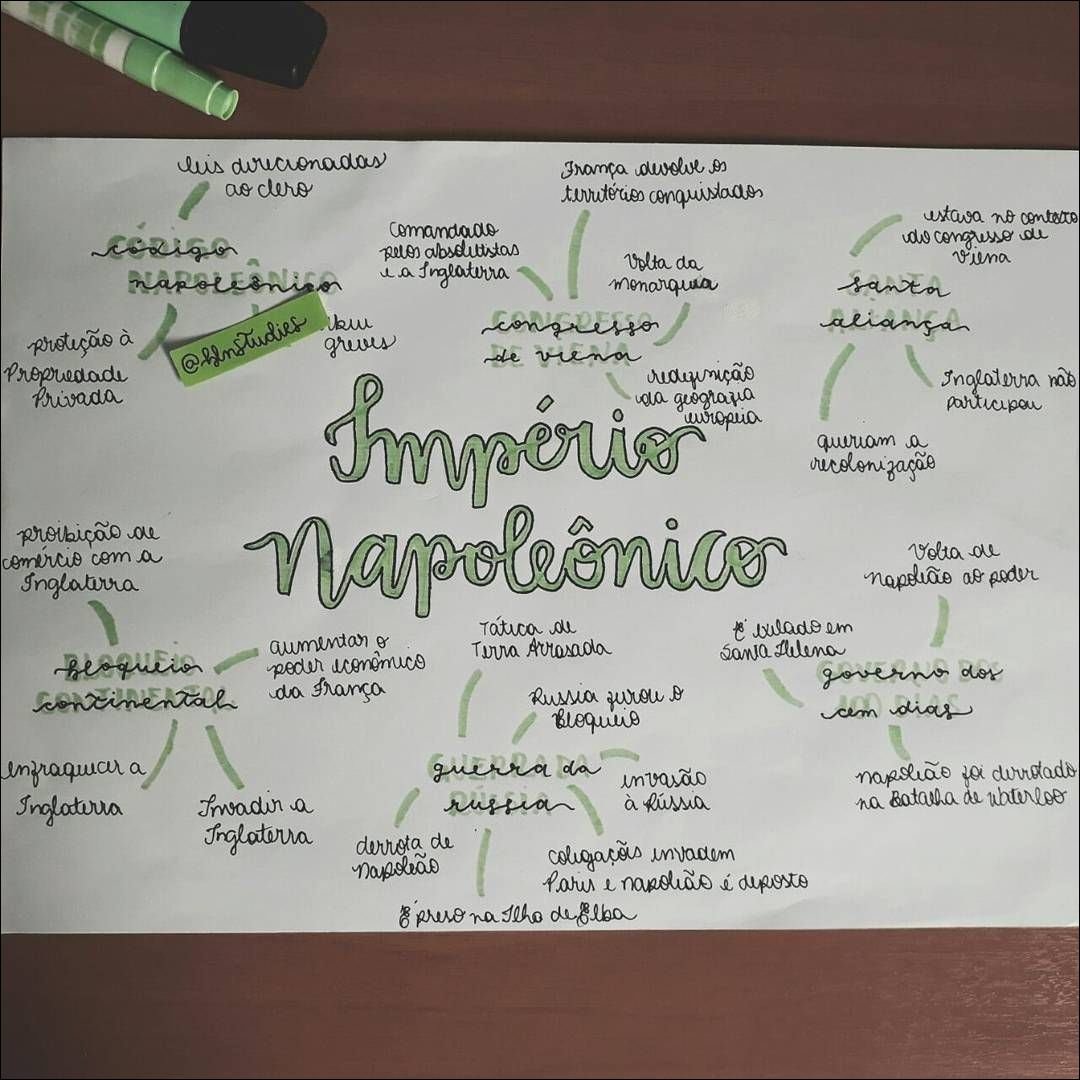 leis direcionadas
ao clero
código
CÓDIGO
napoleônico
NAPOLEÔNICO
proteção à
Propriedade
Privada
@blnstudies
greves
Comandado
pelos absolutistas
e a Inglaterra
França devolve os
territórios conquistados
Volta da
monarquia
congresso
CONGRESSO
de viena
DE VIENA
redefinição
da geografia
europeia
estava no contexto
do congresso de
Viena
santa
SANTA
aliança
ALIANÇA
Inglaterra não
participou
queriam a
recolonização
Império
Napoleônico
proibição de
comércio com a
Inglaterra
bloqueio
BLOQUEIO
continental
CONTINENTAL
aumentar o
poder econômico
da França
enfraquecer a
Inglaterra
Invadir a
Inglaterra
Tática de
Terra Arrasada
Russia furou o
Bloqueio
guerra da
GUERRA DA
russia
RÚSSIA
invasão
à Rússia
derrota de
Napoleão
coligações invadem
Paris e napoleão é deposto
É preso na Ilha de Elba
Volta de
Napoleão ao poder
É exilado em
Santa Helena
governo dos
GOVERNO DOS
cem dias
100 DIAS
napoleão foi derrotado
na Batalha de Waterloo